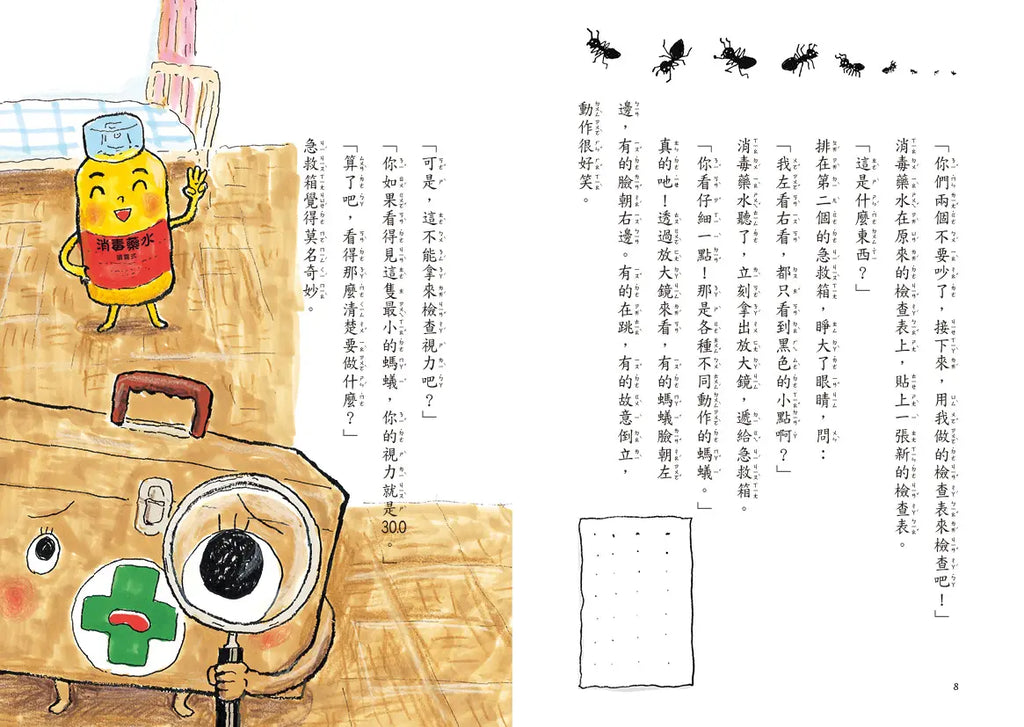 「你們兩個不要吵了，接下來，用我做的檢查表來檢查吧！」
消毒藥水在原來的檢查表上，貼上一張新的檢查表。
「這是什麼東西？」
排在第二個的急救箱，睜大了眼睛，問：
「我左看右看，都只看到黑色的小點啊？」
消毒藥水聽了，立刻拿出放大鏡，遞給急救箱。
「你看仔細一點！那是各種不同動作的螞蟻。」
真的吔！透過放大鏡來看，有的螞蟻臉朝左
邊，有的臉朝右邊。有的在跳，有的故意倒立，
動作很好笑。
8
「可是，這不能拿來檢查視力吧？」
「你如果看得見這隻最小的螞蟻，你的視力就是30.0。」
「算了吧，看得那麼清楚要做什麼？」
急救箱覺得莫名奇妙。
消毒藥水